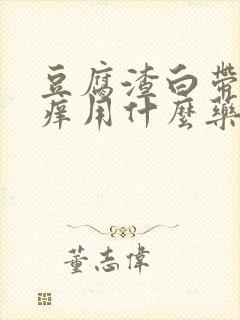 豆腐渣白帶
痒用什麼藥
董志偉